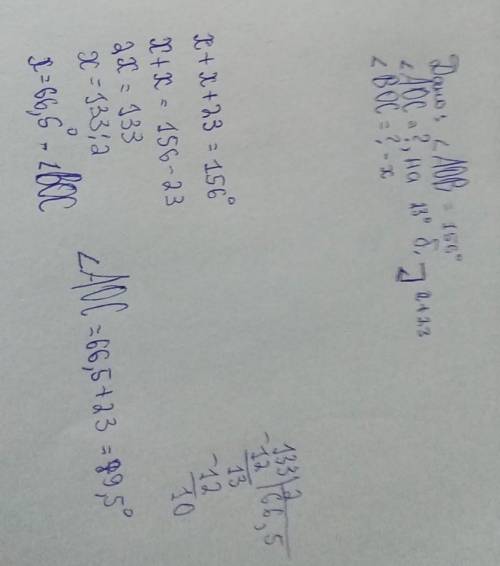 Дано: ∠AOB = 156°
∠AOC = ?, на 23° б,
∠BOC = ? - x
x + x + 23 = 156°
x + x = 156 - 23
2x = 133
x = 133:2
x = 66,5° - ∠BOC
∠AOC = 66,5 + 23 = 89,5°
133|2
-12|66,5
13
-12
10